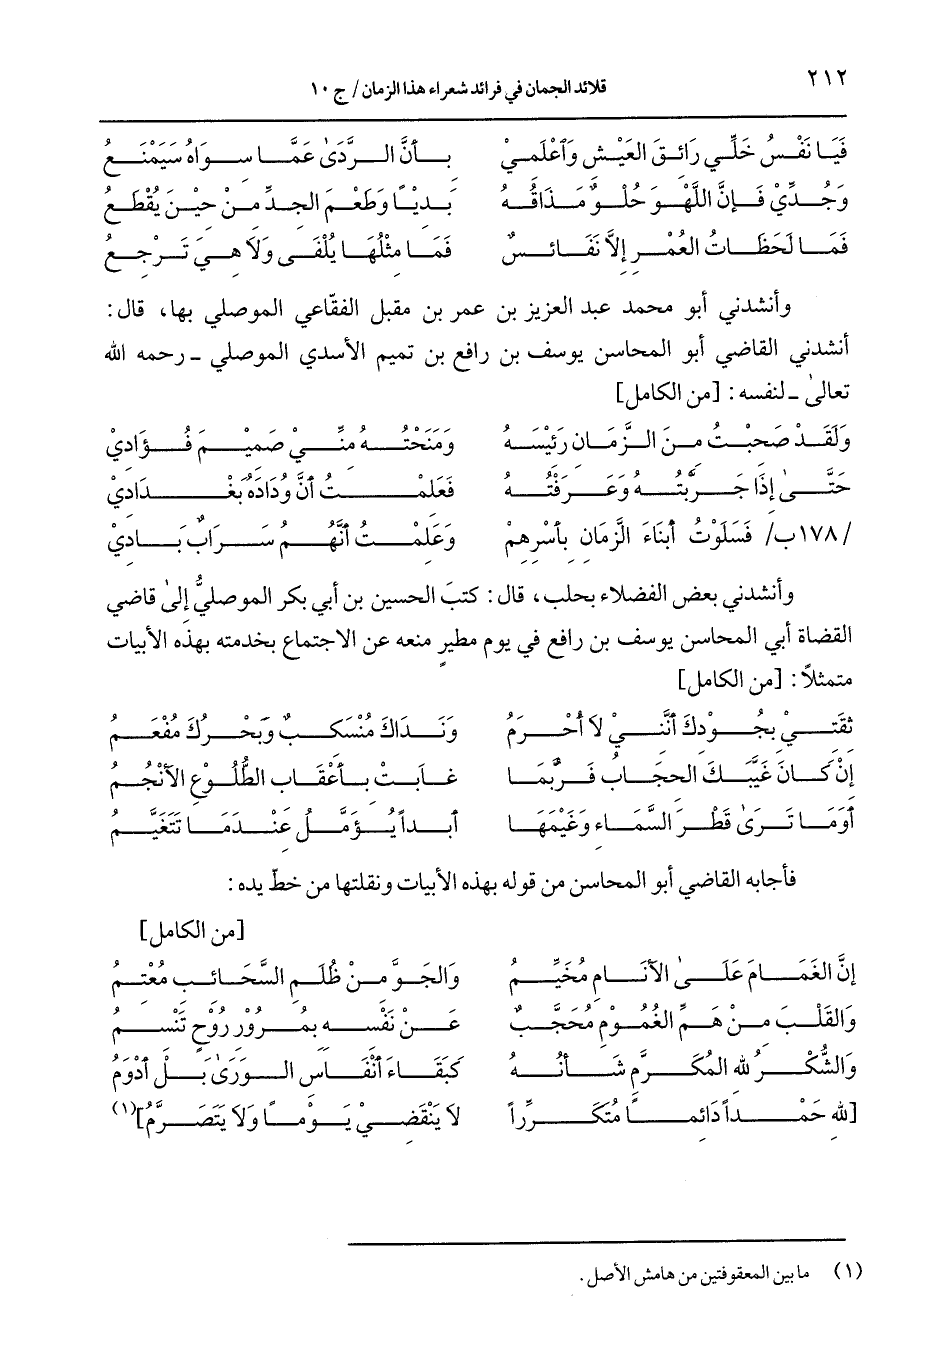 ٢١٢
قلائد الجمان في فرائد شعراء هذا الزمان/ ج ١٠
فَيَا نَفْسُ خَلِّي رَائِقَ العَيْشِ وَٱعْلَمِي بِأَنَّ الرَّدَىٰ عَمَّا سِوَاهُ سَيَمْنَعُ
وَجُدِّيْ فَإِنَّ اللَّهْوَ حُلْوٌ مَذَاقُهُ بَدِيَّاً وَطَعْمِ الجِدِّ مِنْ حِيْنِ يُقْطَعُ
فَمَا لَحَظَاتُ العُمْرِ إِلاَّ نَفَائِسٌ فَمَا مِثْلُهَا يُلْفَى وَلاَ هِيَ تَرْجِعُ
وأنشدني أبو محمد عبد العزيز بن عمر بن مقبل الفقّاعي الموصلي بها، قال:
أنشدني القاضي أبو المحاسن يوسف بن رافع بن تميم الأسدي الموصلي ـ رحمه الله
تعالىٰ ـ لنفسه: [من الكامل]
وَلَقَدْ صَحِبْتُ مِنَ الزَّمَانِ رَئِيْسَهُ وَمَنَحْتُهُ مِنِّيْ صَمِيْمَ فُؤَادِيْ
حَتَّىٰ إِذَا جَرَّبْتُهُ وَعَرَفْتُهُ فَعَلِمْتُ أَنَّ وُدَادَهُ بَغْدَادِيْ
/١٧٨ب/ فَسَلَوْتُ أَبْنَاءَ الزَّمَانِ بِأَسْرِهِمْ وَعَلِمْتُ أَنَّهُمُ سَرَابٌ بَادِيْ
وأنشدني بعض الفضلاء بحلب، قال: كتبَ الحسين بن أبي بكر الموصليُّ إلىٰ قاضي
القضاة أبي المحاسن يوسف بن رافع في يوم مطيرٍ منعه عن الاجتماع بخدمته بهذه الأبيات
متمثلاً: [من الكامل]
ثِقَتِيْ بِجُوْدِكَ أَنَّنِيْ لاَ أُحْرَمُ وَنَدَاكَ مُنْسَكِبٌ وَبَحْرُكَ مُفْعَمُ
إِنْ كَانَ غَيَّبَكَ الحِجَابُ فَرُبَّمَا غَابَتْ بِأَعْقَابِ الطُّلُوْعِ الأَنْجُمُ
أَوَمَا تَرَىٰ قَطْرَ السَّمَاءِ وَغَيْمَهَا أَبَداً يُؤَمَّلُ عِنْدَمَا تَتَغَيَّمُ
فأجابه القاضي أبو المحاسن من قوله بهذه الأبيات ونقلتها من خطّ يده:
[من الكامل]
إِنَّ الغَمَامَ عَلَىٰ الأَنَامِ مُخَيِّمُ وَالجَوَّ مِنْ ظُلَمِ السَّحَائِبِ مُعْتِمُ
وَالقَلْبَ مِنْ هَمِّ الغُمُوْمِ مُحَجَّبٌ عَنْ نَفْسِهِ بِمُرُوْرِ رُوْحٍ تَنْسِمُ
وَالشُّكْرُ للهِ المُكَرَّمِ شَأْنُهُ كَبَقَاءِ أَنْفَاسِ الوَرَىٰ بَلْ أَدْوَمُ
[للهِ حَمْداً دَائِماً مُتَكَرِّراً لاَ يَنْقَضِيْ يَوْماً وَلاَ يَتَصَرَّمُ](١)
(١) ما بين المعقوفتين من هامش الأصل.